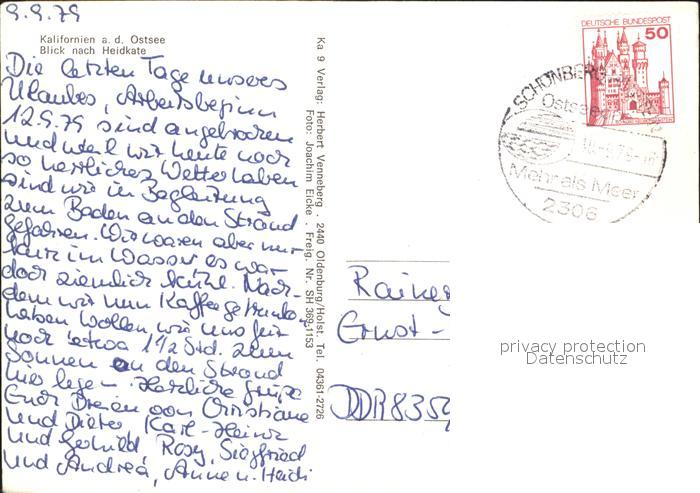 9.9.79
Kalifornien a. d. Ostsee
Blick nach Heidkate
Die letzten Tage unseres
Urlaubes, Arbeitsbeginn
12.9.79 sind angebrochen
und weil wir heute noch
so herrliches Wetter haben
sind wir in Begleitung
zum Baden an den Strand
gefahren. Wir waren aber nur
kurz im Wasser es war
doch ziemlich kühl. Nach-
dem wir nun Kaffee getrunken
haben wollen wir uns für
noch etwa 1 1/2 Std. zum
Sonnen an den Strand
legen. Herzliche Grüße
Euch Dreien von Christiane
und Dieter Karl-Heinz
und Gerhild, Rosy, Siegfried
und Andrea, Anne u. Heidi
Ka 9 Verlag: Herbert Venneberg · 2440 Oldenburg/Holst. Tel. 04361-2726
Foto: Joachim Eicke · Freig. Nr. SH 369-1153
DEUTSCHE BUNDESPOST
50
SCHÖNBERG
Ostsee
Mehr als Meer
2306
Rainer
Ernst-
DDR 835
privacy protection
Datenschutz